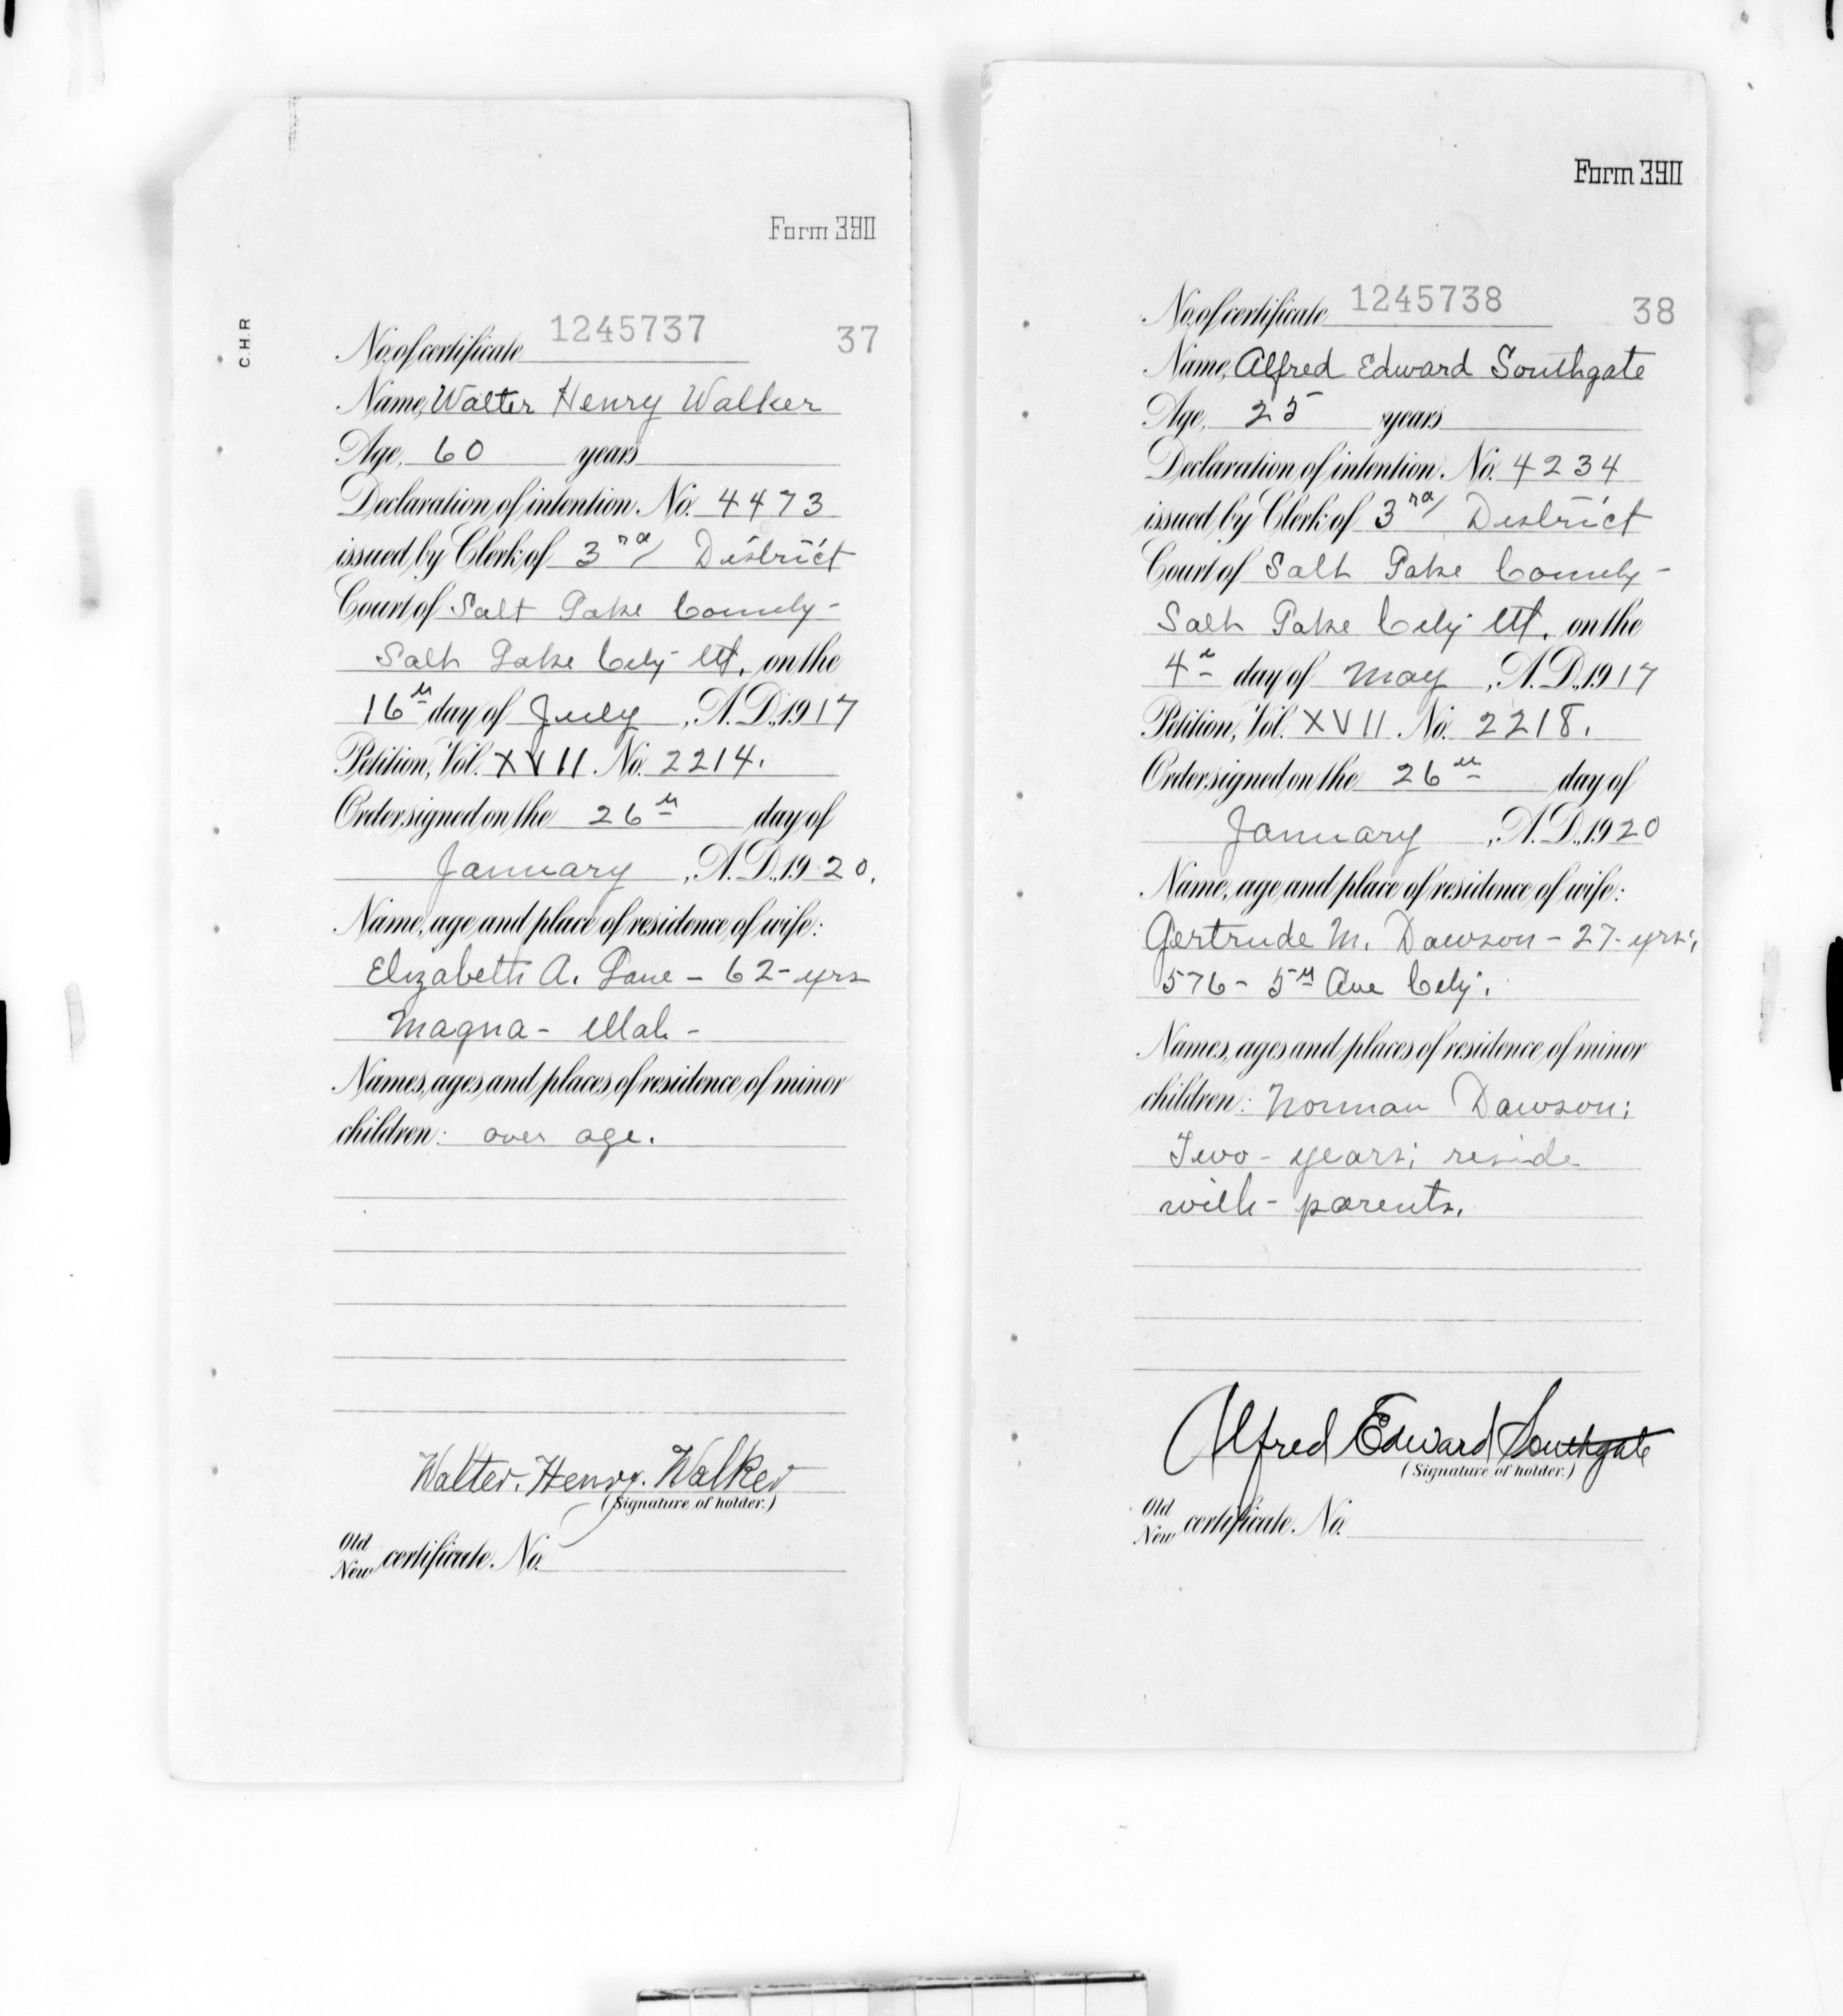 Form 390
C.H.R
No. of certificate 1245737 37
Name, Walter Henry Walker
Age, 60 years
Declaration of intention No. 4473
issued by Clerk of 3rd District
Court of Salt Lake County-
Salt Lake City Ut., on the
16th day of July, A.D., 1917
Petition, Vol. XVII No. 2214.
Order signed on the 26th day of
January, A.D., 1920.
Name, age and place of residence of wife:
Elizabeth A. Lane - 62- yrs
Magna - Utah -
Names, ages and places of residence of minor
children: over age.
Walter. Henry. Walker
(Signature of holder.)
Old
New certificate No.
Form 390
No. of certificate 1245738 38
Name, Alfred Edward Southgate
Age, 25 years
Declaration of intention No. 4234
issued by Clerk of 3rd District
Court of Salt Lake County-
Salt Lake City Ut., on the
4th day of May, A.D., 1917
Petition, Vol. XVII No. 2218.
Order signed on the 26th day of
January, A.D., 1920
Name, age and place of residence of wife:
Gertrude M. Dawson - 27- yrs;
576 - 5th Ave City.
Names, ages and places of residence of minor
children: Norman Dawson;
Two - years; reside
with - parents.
Alfred Edward Southgate
(Signature of holder.)
Old
New certificate No.